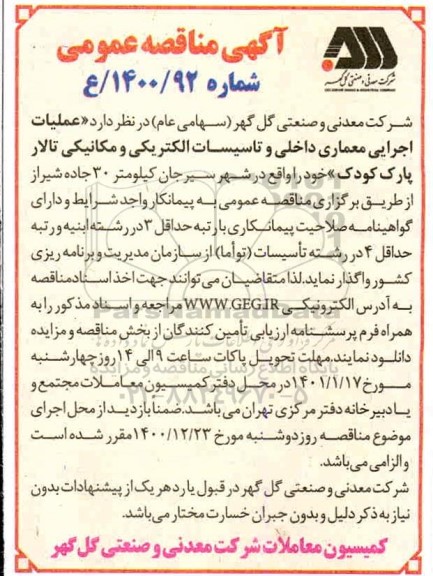 آگهی مناقصه عمومی
شماره ۱۴۰۰/۹۲/ع
شرکت معدنی و صنعتی گل گهر
GOL GOHAR MINING & INDUSTRIAL COMPANY
شرکت معدنی و صنعتی گل گهر (سهامی عام) در نظر دارد «عملیات
اجرایی معماری داخلی و تاسیسات الکتریکی و مکانیکی تالار
پارک کودک» خود را واقع در شهر سیرجان کیلومتر ۳۰ جاده شیراز
از طریق برگزاری مناقصه عمومی به پیمانکار واجد شرایط و دارای
گواهینامه صلاحیت پیمانکاری با رتبه حداقل ۳ در رشته ابنیه و رتبه
حداقل ۴ در رشته تأسیسات (توأما) از سازمان مدیریت و برنامه ریزی
کشور واگذار نماید. لذا متقاضیان می توانند جهت اخذ اسناد مناقصه
به آدرس الکترونیکی WWW.GEG.IR مراجعه و اسناد مذکور را به
همراه فرم پرسشنامه ارزیابی تأمین کنندگان از بخش مناقصه و مزایده
دانلود نمایند. مهلت تحویل پاکات ساعت ۹ الی ۱۴ روز چهارشنبه
مورخ ۱۴۰۱/۱/۱۷ در محل دفتر کمیسیون معاملات مجتمع و
یا دبیرخانه دفتر مرکزی تهران می باشد. ضمنا بازدید از محل اجرای
موضوع مناقصه روز دوشنبه مورخ ۱۴۰۰/۱۲/۲۳ مقرر شده است
و الزامی می باشد.
شرکت معدنی و صنعتی گل گهر در قبول یا رد هر یک از پیشنهادات بدون
نیاز به ذکر دلیل و بدون جبران خسارت مختار می باشد.
کمیسیون معاملات شرکت معدنی و صنعتی گل گهر